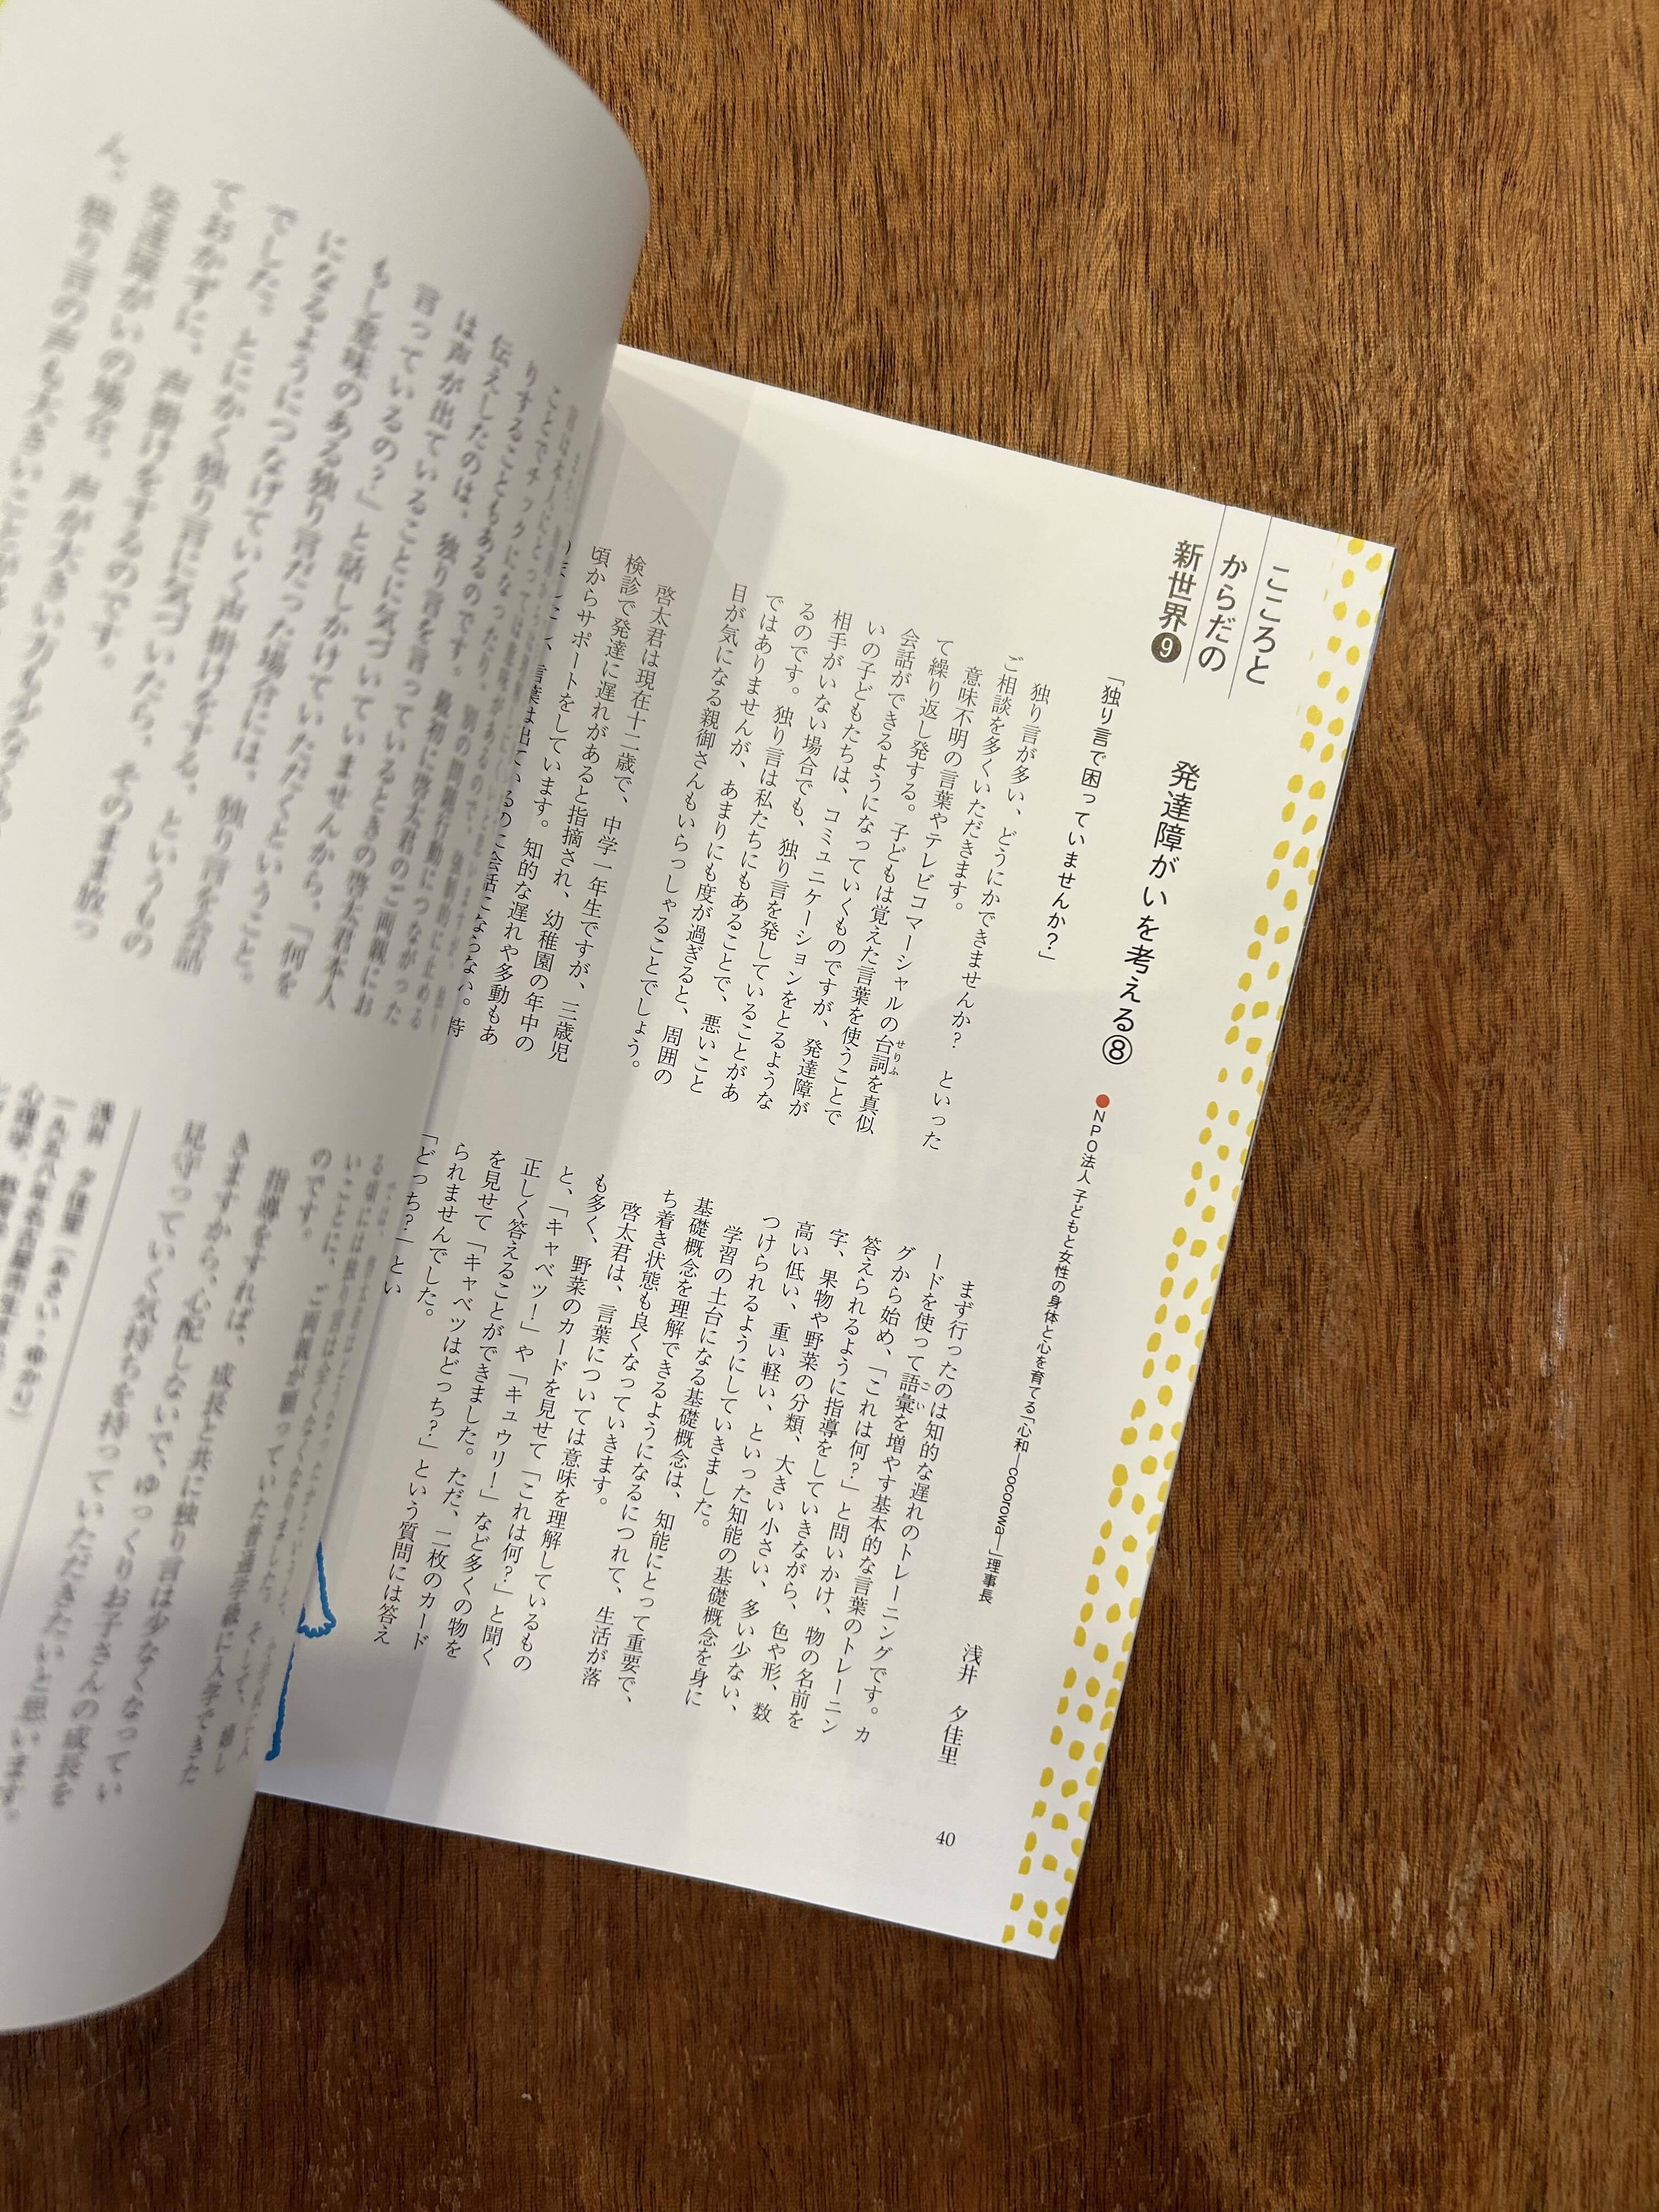 こころと
からだの
新世界❾
発達障がいを考える⑧
●NPO法人 子どもと女性の身体と心を育てる「心和―cocorowa―」理事長
浅井 夕佳里
「独り言で困っていませんか？」
独り言が多い、どうにかできませんか？ といった
ご相談を多くいただきます。
意味不明の言葉やテレビコマーシャルの台詞を真似
せりふ
て繰り返し発する。子どもは覚えた言葉を使うことで
会話ができるようになっていくものですが、発達障が
いの子どもたちは、コミュニケーションをとるような
相手がいない場合でも、独り言を発していることがあ
るのです。独り言は私たちにもあることで、悪いこと
ではありませんが、あまりにも度が過ぎると、周囲の
目が気になる親御さんもいらっしゃることでしょう。
啓太君は現在十二歳で、中学一年生ですが、三歳児
検診で発達に遅れがあると指摘され、幼稚園の年中の
頃からサポートをしています。知的な遅れや多動もあ
言葉は出ているのに会話にならない。特
まず行ったのは知的な遅れのトレーニングです。カ
ードを使って語彙を増やす基本的な言葉のトレーニン
ごい
グから始め、「これは何？」と問いかけ、物の名前を
答えられるように指導をしていきながら、色や形、数
字、果物や野菜の分類、大きい小さい、多い少ない、
高い低い、重い軽い、といった知能の基礎概念を身に
つけられるようにしていきました。
学習の土台になる基礎概念は、知能にとって重要で、
基礎概念を理解できるようになるにつれて、生活が落
ち着き状態も良くなっていきます。
啓太君は、言葉については意味を理解しているもの
も多く、野菜のカードを見せて「これは何？」と聞く
と、「キャベツ！」や「キュウリ！」など多くの物を
正しく答えることができました。ただ、二枚のカード
を見せて「キャベツはどっち？」という質問には答え
られませんでした。
「どっち？」とい
40
ことでチックになったり、別の問題行動につながった
りすることもあるのです。最初に啓太君のご両親にお
伝えしたのは、独り言を言っているときの啓太君本人
は声が出ていることに気づいていませんから、「何を
言っているの？」と話しかけていただくということ。
もし意味のある独り言だった場合には、独り言を会話
になるようにつなげていく声掛けをする、というもの
でした。とにかく独り言に気づいたら、そのまま放っ
ておかずに、声掛けをするのです。
発達障がいの場合、声が大きい方も少なくあ
ん。独り言の声も大きいことが
のです。ご両親が願っていた普通学級に入学できた
指導をすれば、成長と共に独り言は少なくなってい
きますから、心配しないで、ゆっくりお子さんの成長を
見守っていく気持ちを持っていただきたいと思います。
浅井 夕佳里（あさい・ゆかり）